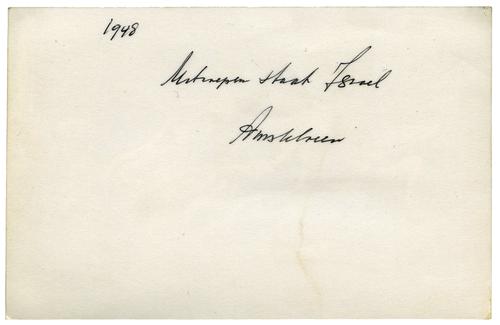 1948
Uitroepen staat Israel
Amstelveen